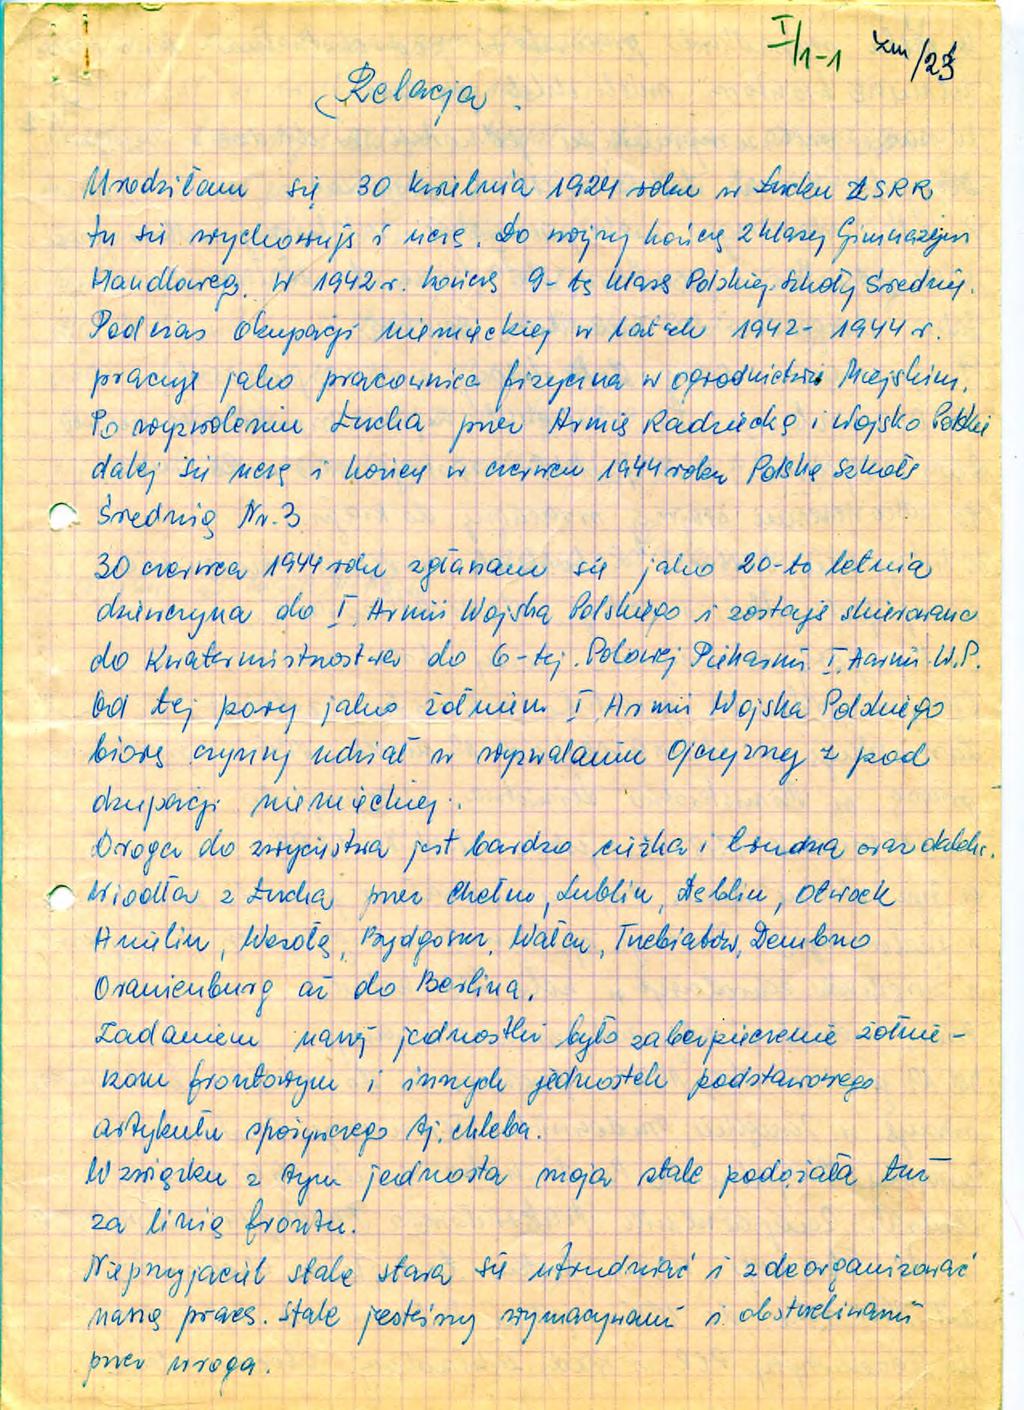 I/1-1 XIII/23
Relacja.
Urodziłam się 30 kwietnia 1924 roku w Łucku ZSRR
tu się wychowuję i uczę. Do wojny kończę 2 klasy Gimnazjum
Handlowego. W 1942 r. kończę 9-tą klasę Polskiej Szkoły Średniej.
Podczas okupacji niemieckiej w latach 1942-1944 r.
pracuję jako pracownica fizyczna w ogrodnictwie Miejskim.
Po wyzwoleniu Łucka przez Armię Radziecką i Wojsko Polskie
dalej się uczę i kończę w czerwcu 1944 roku Polską Szkołę
Średnią Nr. 3
30 czerwca 1944 roku zgłaszam się jako 20-to letnia
dziewczyna do I Armii Wojska Polskiego i zostaję skierowana
do Kwatermistrzostwa do 6-tej Polowej Piekarni I Aarmii W.P.
Od tej pory jako żołnierz I Armii Wojska Polskiego
biorę czynny udział w wyzwalaniu Ojczyzny z pod
okupacji niemieckiej.
Droga do zwycięstwa jest bardzo ciężka i trudna oraz daleka.
Wiodła z Łucka przez Chełm, Lublin, Dęblin, Otwock
Anielin, Wesołą, Bydgoszcz, Wałcz, Trzebiatów, Dembno
Oranienburg aż do Berlina.
Zadaniem naszej jednostki było zabezpieczenie żołnie-
rzom frontowym i innych jednostek podstawowego
artykułu spożywczego tj. chleba.
W związku z tym jednostka moja stale podążała tuż
za linią frontu.
Nieprzyjaciel stale stara się utrudniać i zdeorganizować
naszą pracę. Stale jesteśmy wymacywani i obstrzeliwani
przez wroga.